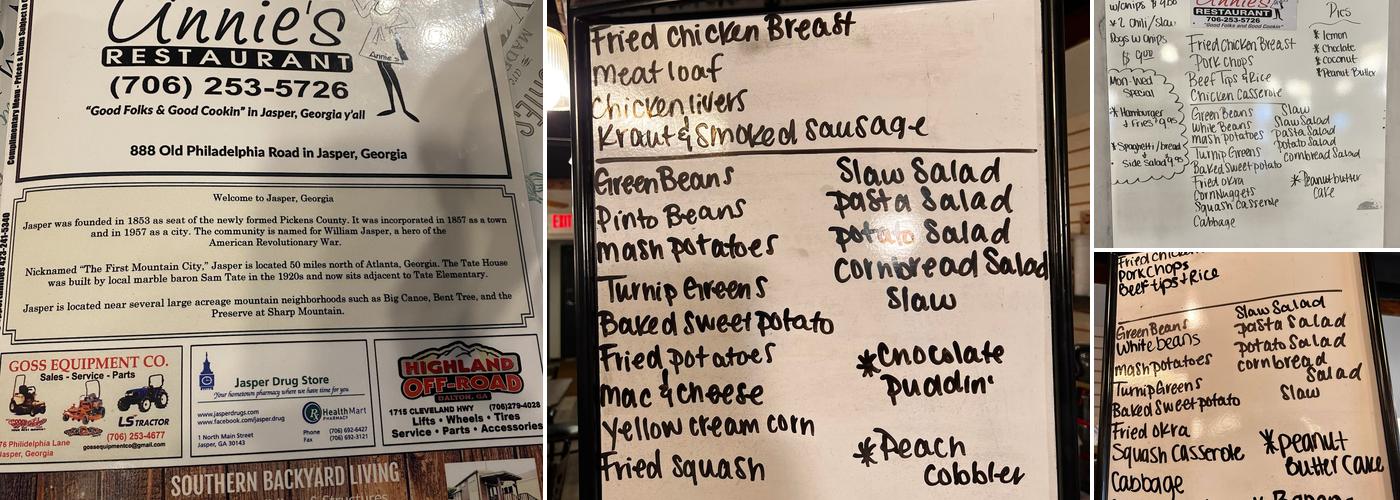 Annie's
RESTAURANT
Annie's
(706) 253-5726
"Good Folks & Good Cookin" in Jasper, Georgia y'all
888 Old Philadelphia Road in Jasper, Georgia
Welcome to Jasper, Georgia
Jasper was founded in 1853 as seat of the newly formed Pickens County. It was incorporated in 1857 as a town
and in 1957 as a city. The community is named for William Jasper, a hero of the
American Revolutionary War.
Nicknamed "The First Mountain City," Jasper is located 50 miles north of Atlanta, Georgia. The Tate House
was built by local marble baron Sam Tate in the 1920s and now sits adjacent to Tate Elementary.
Jasper is located near several large acreage mountain neighborhoods such as Big Canoe, Bent Tree, and the
Preserve at Sharp Mountain.
GOSS EQUIPMENT CO.
Sales - Service - Parts
LS TRACTOR
76 Philidelphia Lane
Jasper, Georgia
(706) 253-4677
gossequipmentco@gmail.com
Jasper Drug Store
Your hometown pharmacy where we have time for you
www.jasperdrugs.com
www.facebook.com/jasper.drug
HealthMart
PHARMACY
1 North Main Street
Jasper, GA 30143
Phone (706) 692-6427
Fax (706) 692-3121
HIGHLAND
OFF-ROAD
DALTON, GA
1715 CLEVELAND HWY (706)279-4028
Lifts • Wheels • Tires
Service • Parts • Accessories
SOUTHERN BACKYARD LIVING
Complimentary Menu - Prices & Items Subject to
Fried Chicken Breast
meat loaf
Chicken livers
Kraut & Smoked Sausage
Green Beans
Pinto Beans
mash potatoes
Turnip Greens
Baked Sweet potato
Fried potatoes
Mac & cheese
yellow cream corn
Fried Squash
Slaw Salad
pasta Salad
potato Salad
cornbread Salad
Slaw
*Chocolate
Puddin'
*Peach
cobbler
EXIT
w/chips $9.00
*2 Chili/Slaw
Dogs w chips
$9.00
Mon-Wed
Special
*Hamburger
& Fries $9.95
*Spaghetti/bread
Side Salad 9.95
Annie's
RESTAURANT
706-253-5726
"Good Folks and Good Cookin"
Fried Chicken Breast
Pork chops
Beef Tips & Rice
Chicken Casserole
Green Beans
White Beans
mash potatoes
Turnip Greens
Baked Sweet potato
Fried okra
Corn Nuggets
Squash Casserole
Cabbage
Slaw
Slaw Salad
pasta Salad
potato Salad
cornbread Salad
*Peanut butter
Cake
Pies
*lemon
*Choclate
*coconut
*Peanut Butter
Fried Chicken
Pork Chops
Beef tips & Rice
Green Beans
White beans
mash potatoes
Turnip Greens
Baked Sweet potato
Fried okra
Squash Casserole
Cabbage
Slaw Salad
pasta Salad
potato Salad
cornbread
Salad
Slaw
*peanut
butter Cake